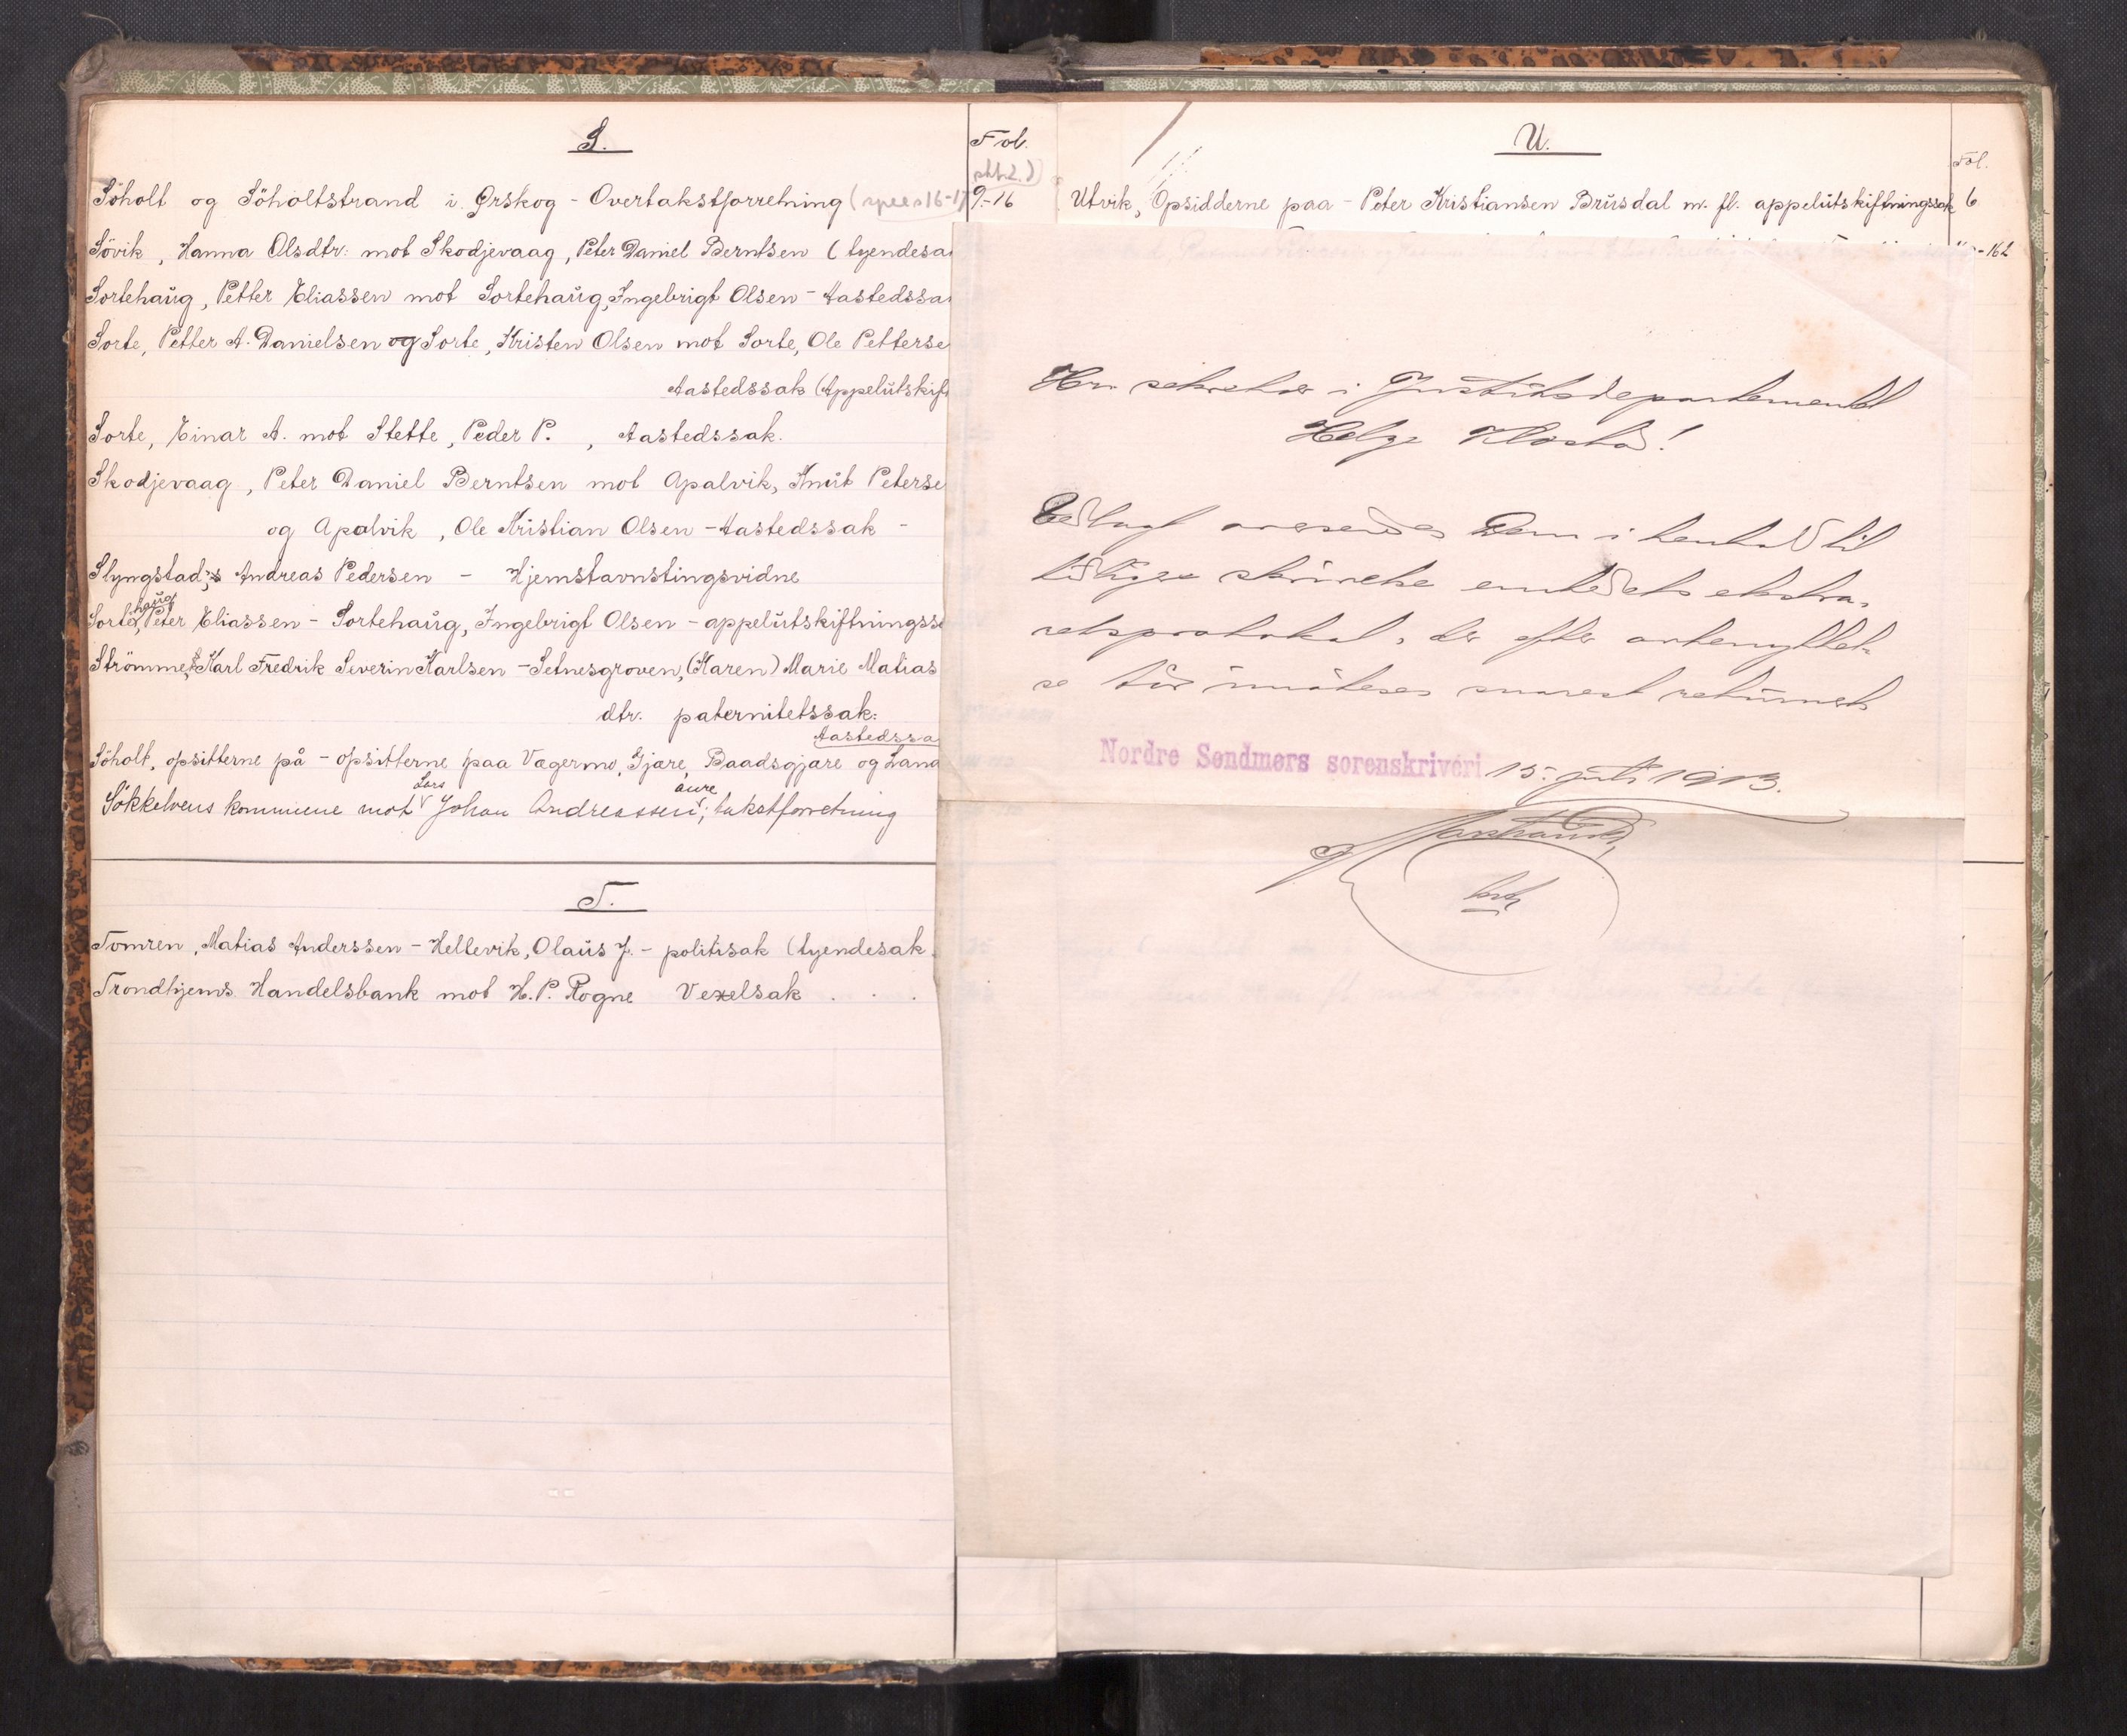 S.
Fol.
Söholt og Söholtstrand i Ørskog - Overtakstforretning 9-16
Sövik, Hanna Olsdtr. mot Skodjevaag, Peter Daniel Berntsen (tyendesa
Sortehaug, Petter Eliassen mot Sortehaug, Ingebrigt Olsen - Aastedssa
Sorte, Petter A. Danielsen og Sorte, Kristen Olsen mot Sorte, Ole Petterse
Aastedssak (Appelutskif
Sorte, Einar A. mot Stette, Peder P., Aastedssak.
Skodjevaag, Peter Daniel Berntsen mot Apalvik, Knut Peterse
og Apalvik, Ole Kristian Olsen - Aastedssak -
Slyngstad, Andreas Pedersen - Hjemstavnstingsvidne
haug
Sorte, Peter Eliassen - Sortehaug, Ingebrigt Olsen - appelutskiftningss
Strömme, Karl Fredrik Severin Karlsen - Setnesgroven, (Karen) Marie Matias
dtr. paternitetssak.
Aastedssa
Söholt, opsitterne på - opsitterne paa Vagermo, Gjære, Baadsgjære og Land
Lars aure
Sökkelvens kommune mot Johan Andreassen, takstforretning
T.
Tomren, Matias Anderssen - Hellevik, Olaus J. - politisak (tyendesak
Trondhjems Handelsbank mot H. P. Rogne Vexelsak . . .
U.
Fol.
Utvik, Opsidderne paa - Peter Kristiansen Brusdal m. fl. appelutskiftningssak 6
-162
Herr sekretær i Justitsdepartementet
Helge Klæstad!
Vedlagt oversendes Dem i henhold til
tidligere skrivelse embedets ekstra-
retsprotokol, der efter avbenyttel-
se bør imøteses snarest returnert
Nordre Søndmørs sorenskriveri 15. juli 1913.